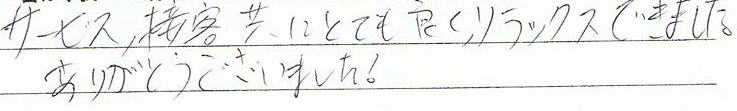 サービス,接客共にとても良く,リラックスできました
ありがとうございました!